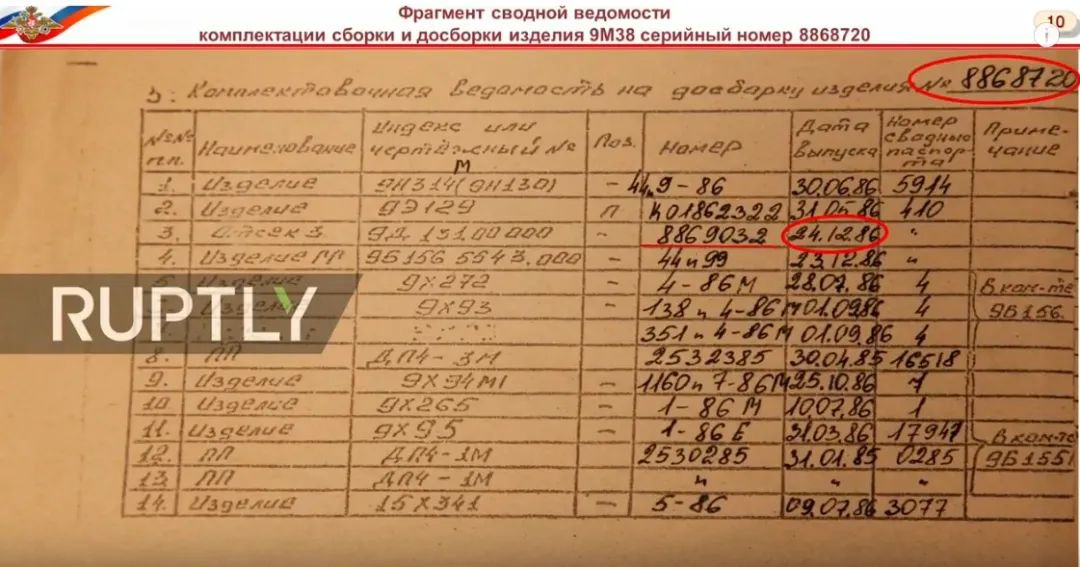 Фрагмент сводной ведомости
комплектации сборки и досборки изделия 9М38 серийный номер 8868720
10
5. Комплектовочная ведомость на досборку изделия № 8868720
№№ п.п. Наименование Индекс или чертёжный № Поз. Номер Дата выпуска Номер сводн. паспорта Примечание
М
1. Изделие 9Н314(9Н130) – 44.9-86 30.06.86 5914
2. Изделие 9Э129 П К01862322 31.05.86 410
3. Отсек 3 9Д 131.00 000 – 8869032 24.12.86 "
4. Изделие ГП 9Б156 5543.000 – 44п99 23.12.86 "
9Х272 – 4-86М 28.07.86 4 В ком-те
9Х93 – 138п4-86М 01.09.86 4 9Б156.
351п4-86М 01.09.86 4
8. ПП ДП4-3М 2532385 30.04.85 16518
9. Изделие 9Х94М1 – 1160п7-86М 25.10.86 7
10. Изделие 9Х265 – 1-86М 10.07.86 1
11. Изделие 9Х95 – 1-86Е 31.03.86 17947 В ком-те
12. ПП ДП4-1М 2530285 31.01.85 0285 9Б1551
13. ПП ДП4-1М " " "
14. Изделие 15Х341 5-86 09.07.86 3077
RUPTLY